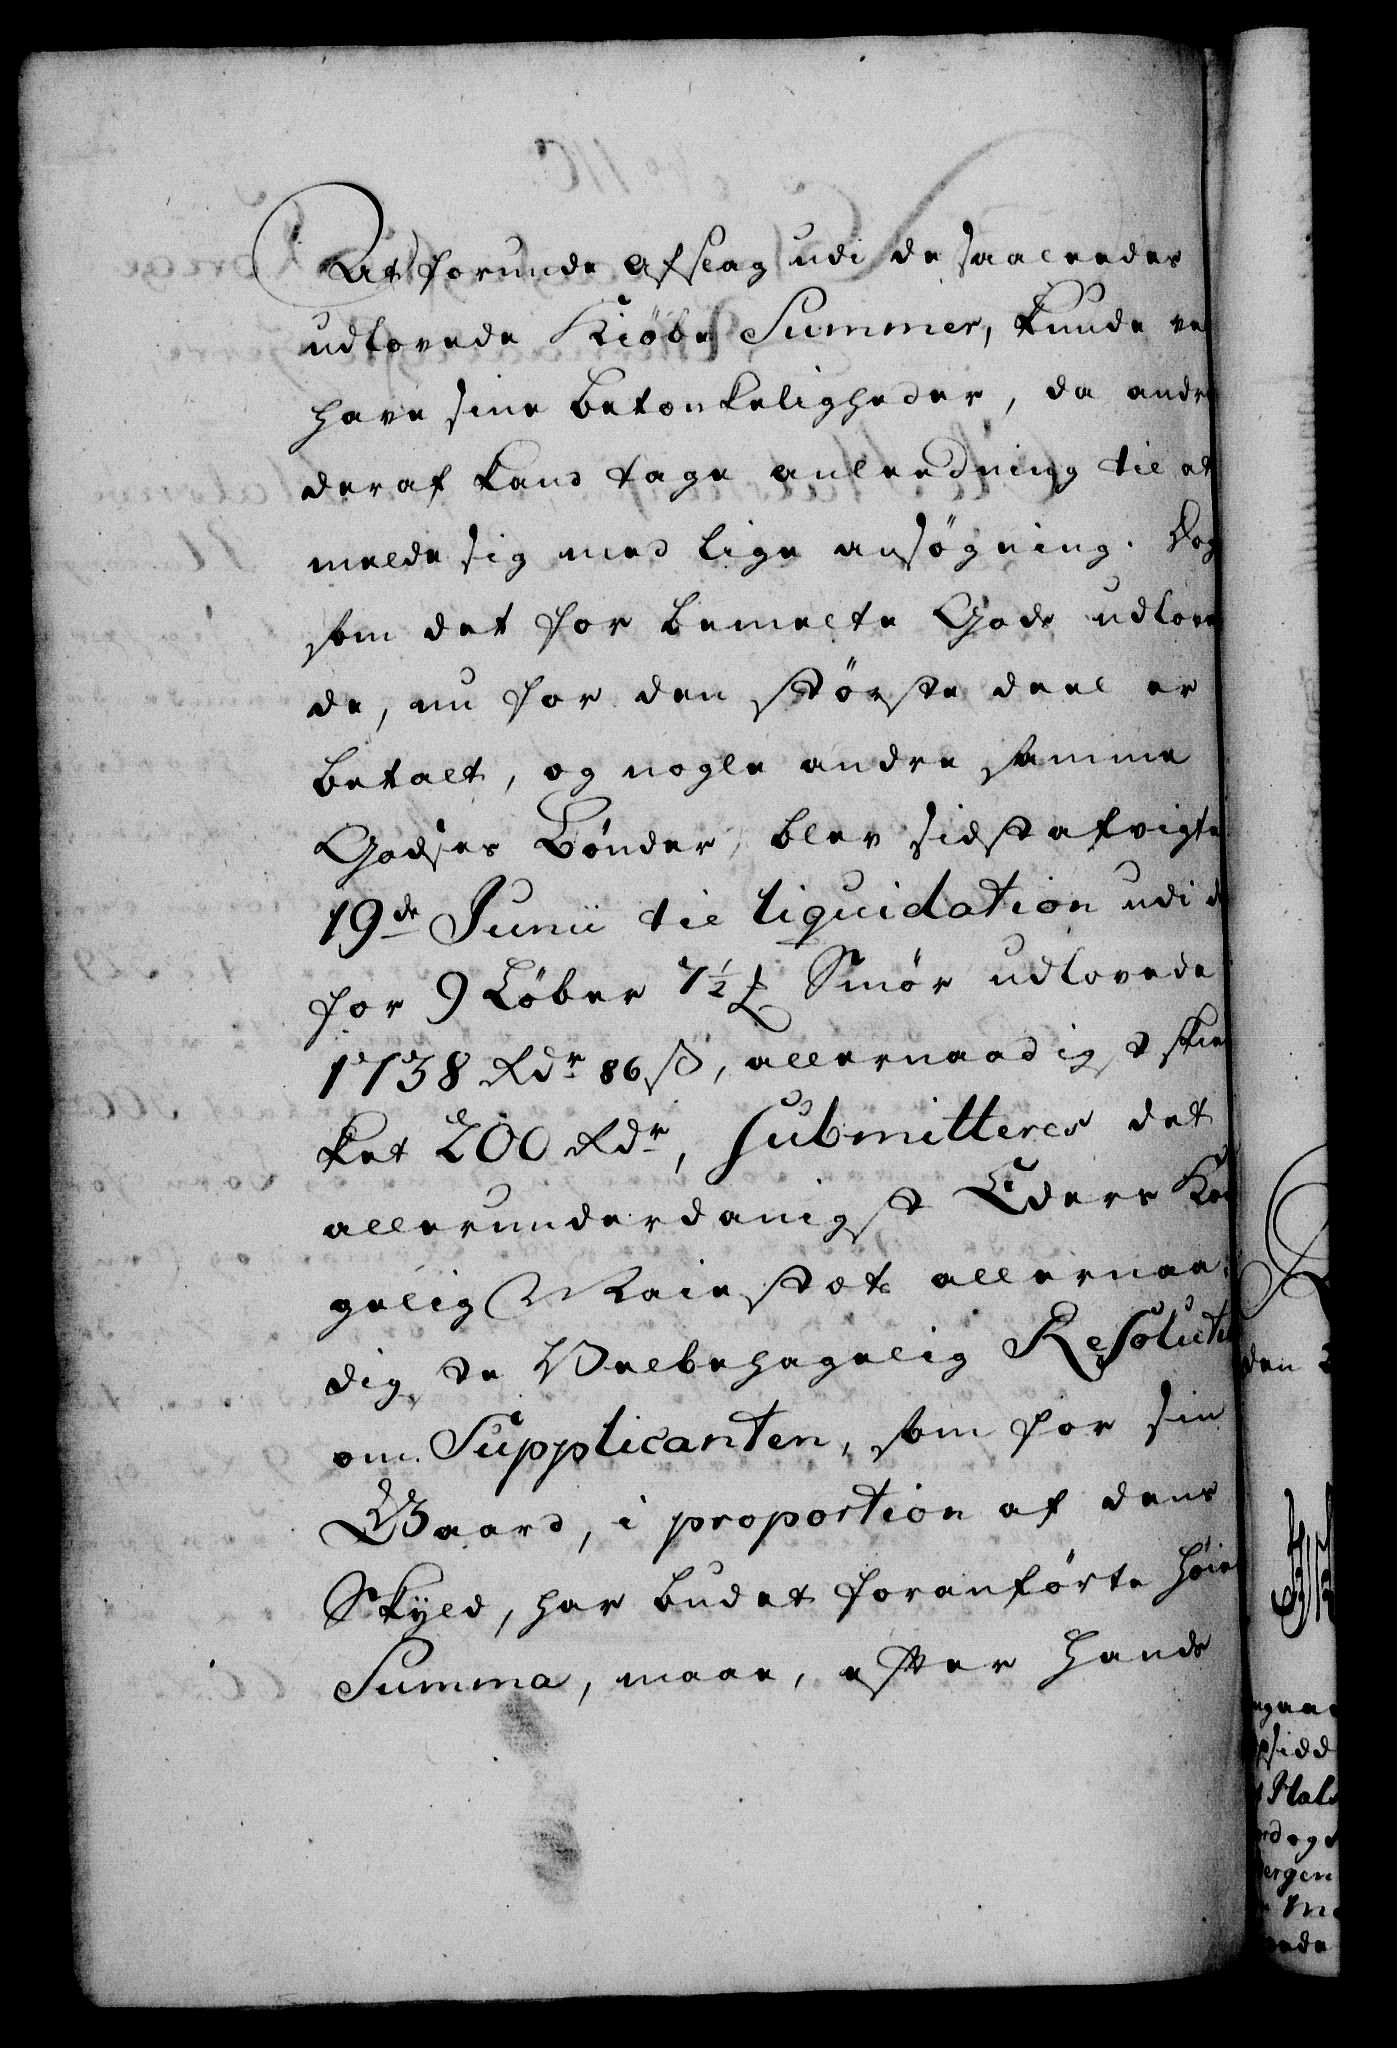 At forunde Afslag udi de saaleedes
udlovede Kiøbe Summer, kunde vel
have sine betænkeligheder, da andre
deraf kand tage anleedning til at
melde sig med lige ansøgning. Dog
som det for bemelte Gods udlove
de, nu for den største deel er
betalt, og nogle andre samme
Godses Bønder, blev sidstafvigte
19de Junii til liquidation udi de
for 9 Løber 7½ ℔ Smør udlovede
1738 Rdr 86 ß, allernaadigst skien
ket 200 Rdr, submitteres det
allerunderdanigst Eders Kon
gelig Maiestæts allernaa
digste Velbehagelig Resolution
om Supplicanten, som for sin
Gaard, i proportion af dens
Skyld, har budet foranførte høie
Summa, maae, efter hands